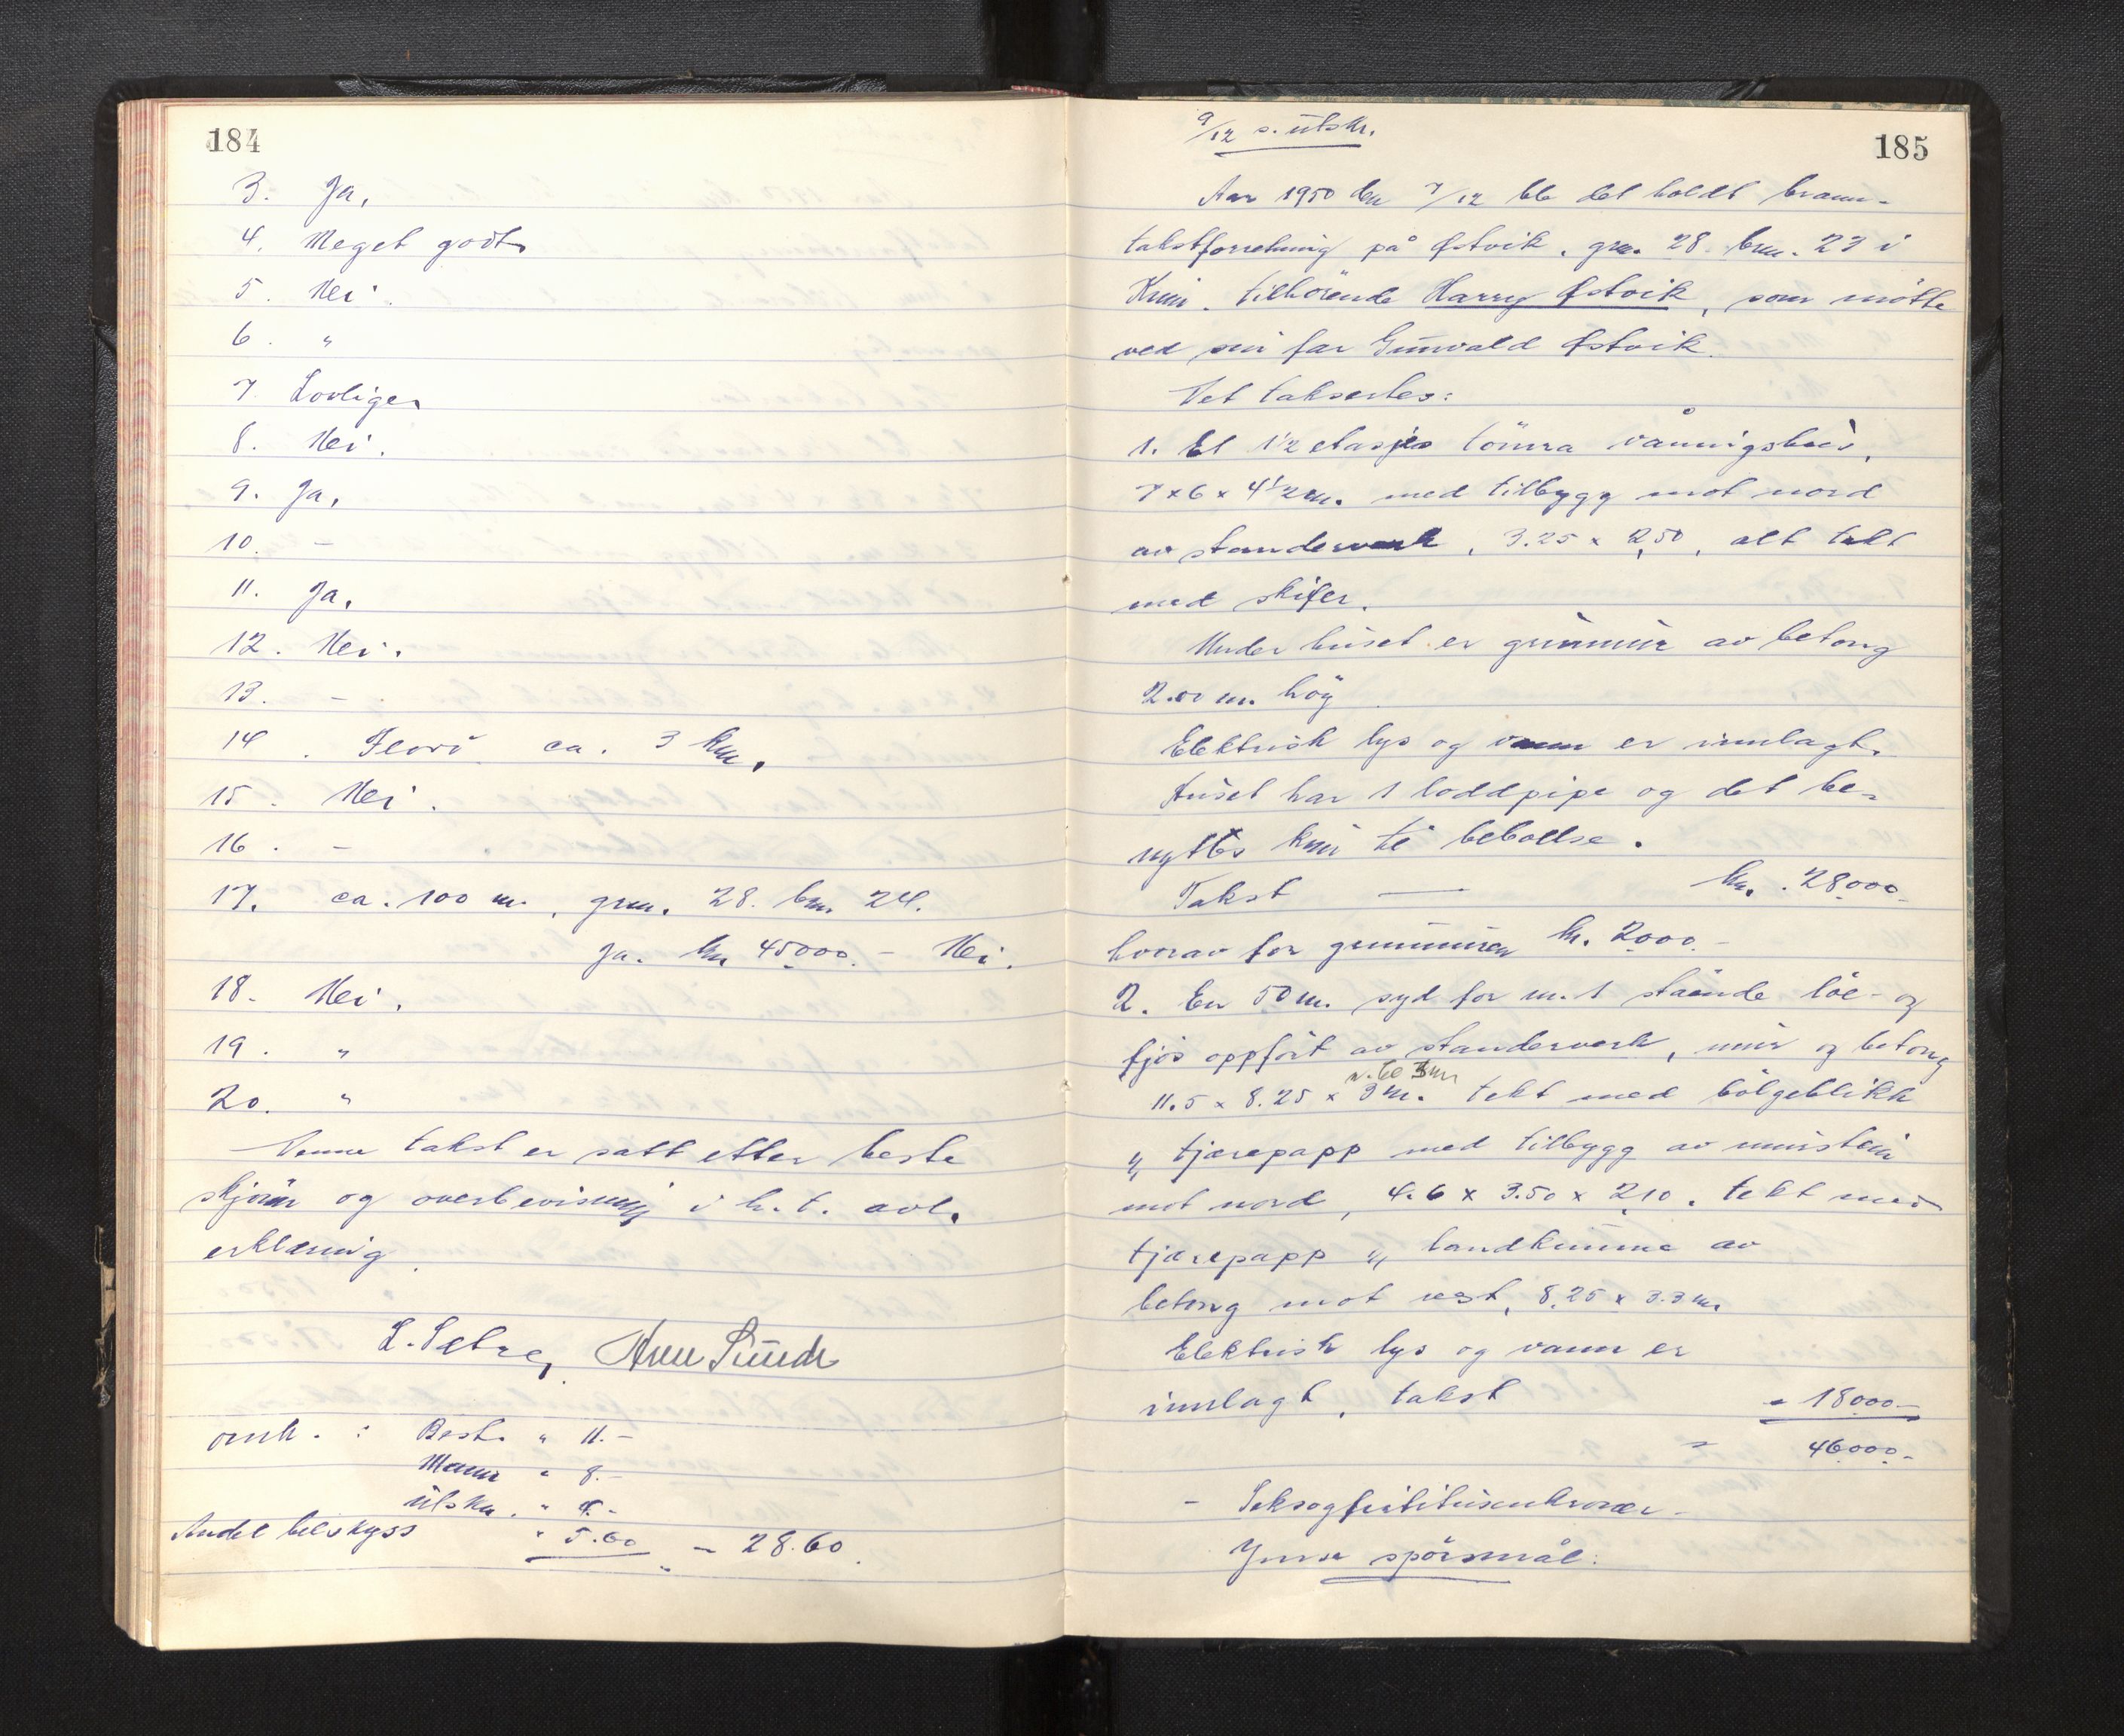 184
3. Ja.
4. Meget godt.
5. Nei.
6. "
7. Lovlige.
8. Nei.
9. Ja.
10. -
11. Ja.
12. Nei.
13. -
14. Florö ca. 3 km.
15. Nei.
16. -
17. ca. 100 m., grn. 28. brn. 24.
Ja. kr 45000.- Nei.
18. Nei.
19. "
20. "
Denne takst er satt etter beste
skjönn og overbevisning i h.t. avl.
erklæring.
L. Sætre, Arne Sunde
omk. : Best. " 11.-
Menn " 8.-
utskr. " 4.-
Andel bilskyss " 5.60 - 28.60.
9/12 s. utskr.
185
Aar 1950 den 7/12 ble det holdt brann-
takstforretning på Østvik, grn. 28. brn. 23 i
Kinn, tilhörende Harry Østvik, som mötte
ved sin far Gunvald Østvik.
Det taksertes:
1. Et 1½ etasjes tömra våningshus,
7 x 6 x 4½ m. med tilbygg mot nord
av standerverk, 3.25 x 2,50, alt tekt
med skifer.
Under huset er grunnmur av betong
2.00 m. höy
Elektrisk lys og vann er innlagt.
Huset har 1 loddpipe og det be-
nyttes kun til beboelse.
Takst — kr. 28000
hvorav for grunnmuren kr. 2000.-
2. En 50 m. syd for nr. 1 stående löe- og
fjös oppfört av standerverk, mur og betong
11.5 x 8.25 x 3 m. tekt med bölgeblikk
og tjærepapp med tilbygg av murstein
mot nord, 4.6 x 3.50 x 2,10, tekt med
tjærepapp og landkumme av
betong mot vest, 8.25 x 3.3 m.
Elektrisk lys og vann er
innlagt, takst " 18000.-
= 46000.-
- Seksogførtitusenkroner -
Ymse spörsmål: